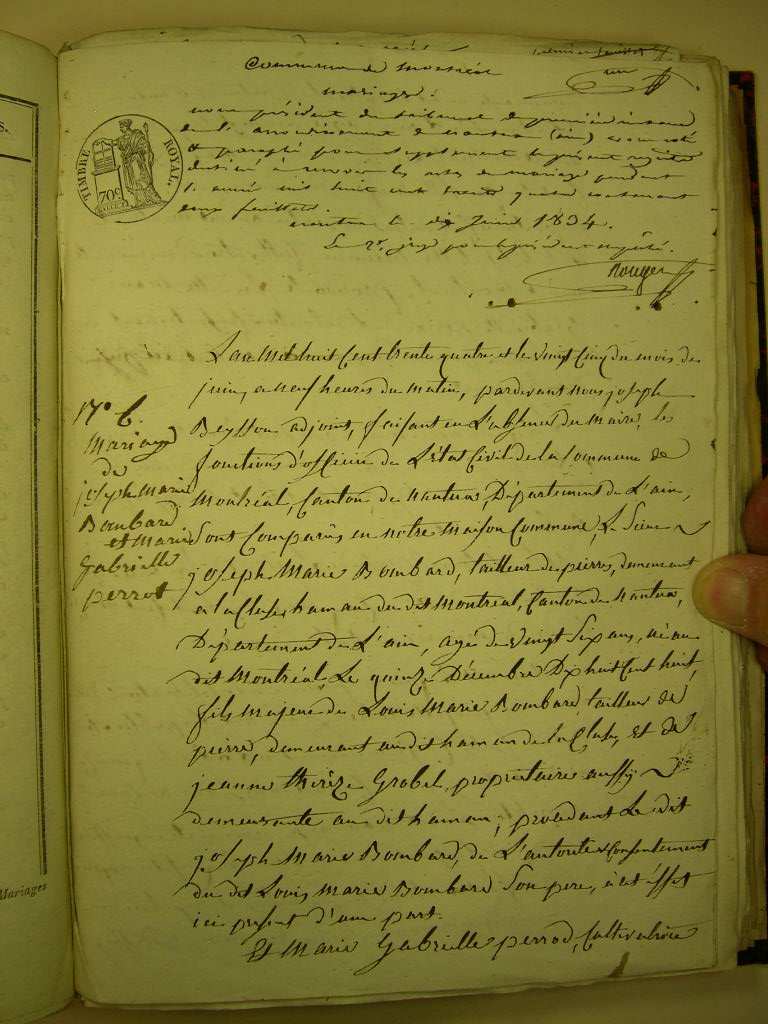 premier feuillet
un
Commune de Montréal
mariages.
nous président du tribunal de première instance
de l'arrondissement de Nantua (ain) avons coté
et paraphé pour supplément le présent registre
destiné à recevoir les actes de mariage pendant
l'année mil huit cent trente quatre contenant
feuillets.
nantua le dix Juin 1834.
Le juge pour le président empêché.
Rouyer
TIMBRE ROYAL.
70c
S.
L'an Mil huit Cent trente quatre et le vingt Cinq du mois de
juin, a neuf heures du matin, pardevant nous joseph
Beysson adjoint, faisant en L'absence du Maire, les
fonctions d'officier de L'état Civil de la Commune de
Montréal, Canton de nantua, Département de L'ain,
Sont Comparûs en notre Maison Commune, Le Sieur
joseph Marie Bombard, tailleur de pierres, demeurant
a la Cluse, hamau du dit Montréal, Canton de Nantua,
Département de L'ain, agé de vingt Six ans, né au
dit Montréal Le quinze Décembre Dix huit Cent huit,
fils Majeur de Louis Marie Bombard, tailleur de
pierre, demeurant audit hamau de la Cluse, et de
jeanne thérèze Grobel, propriétaire aussy
demeurante au dit hamau; procédant Le dit
joseph Marie Bombard, de L'autorité & Consentement
du dit Louis Marie Bombard Son père, à cet éffet
ici présent d'une part.
Et Marie Gabrielle perrod, Cultivatrice
17e C.
Mariage
de
joseph Marie
Bombard
et Marie
Gabrielle
perrot
Mariages